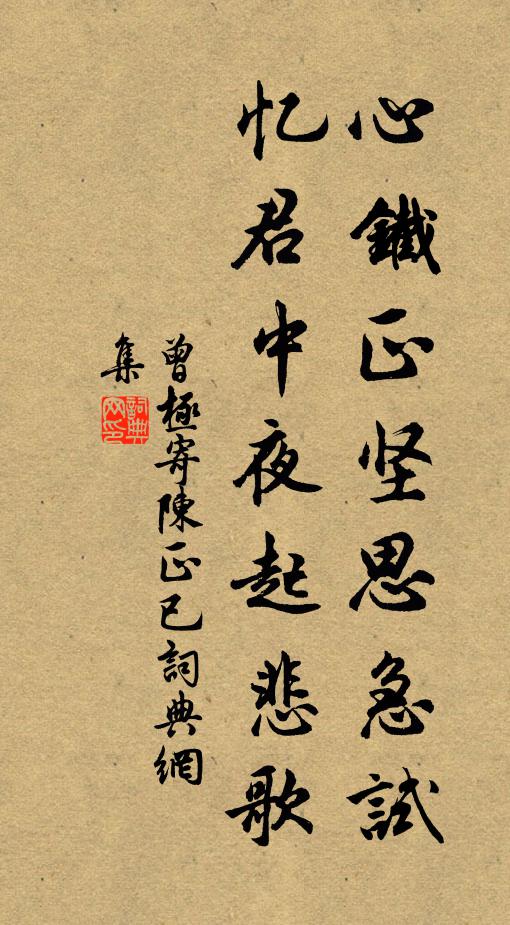 心鐵正坚思急試
忆君中夜起悲歌
曾極寄陳正已詞典網
集
詞典網印